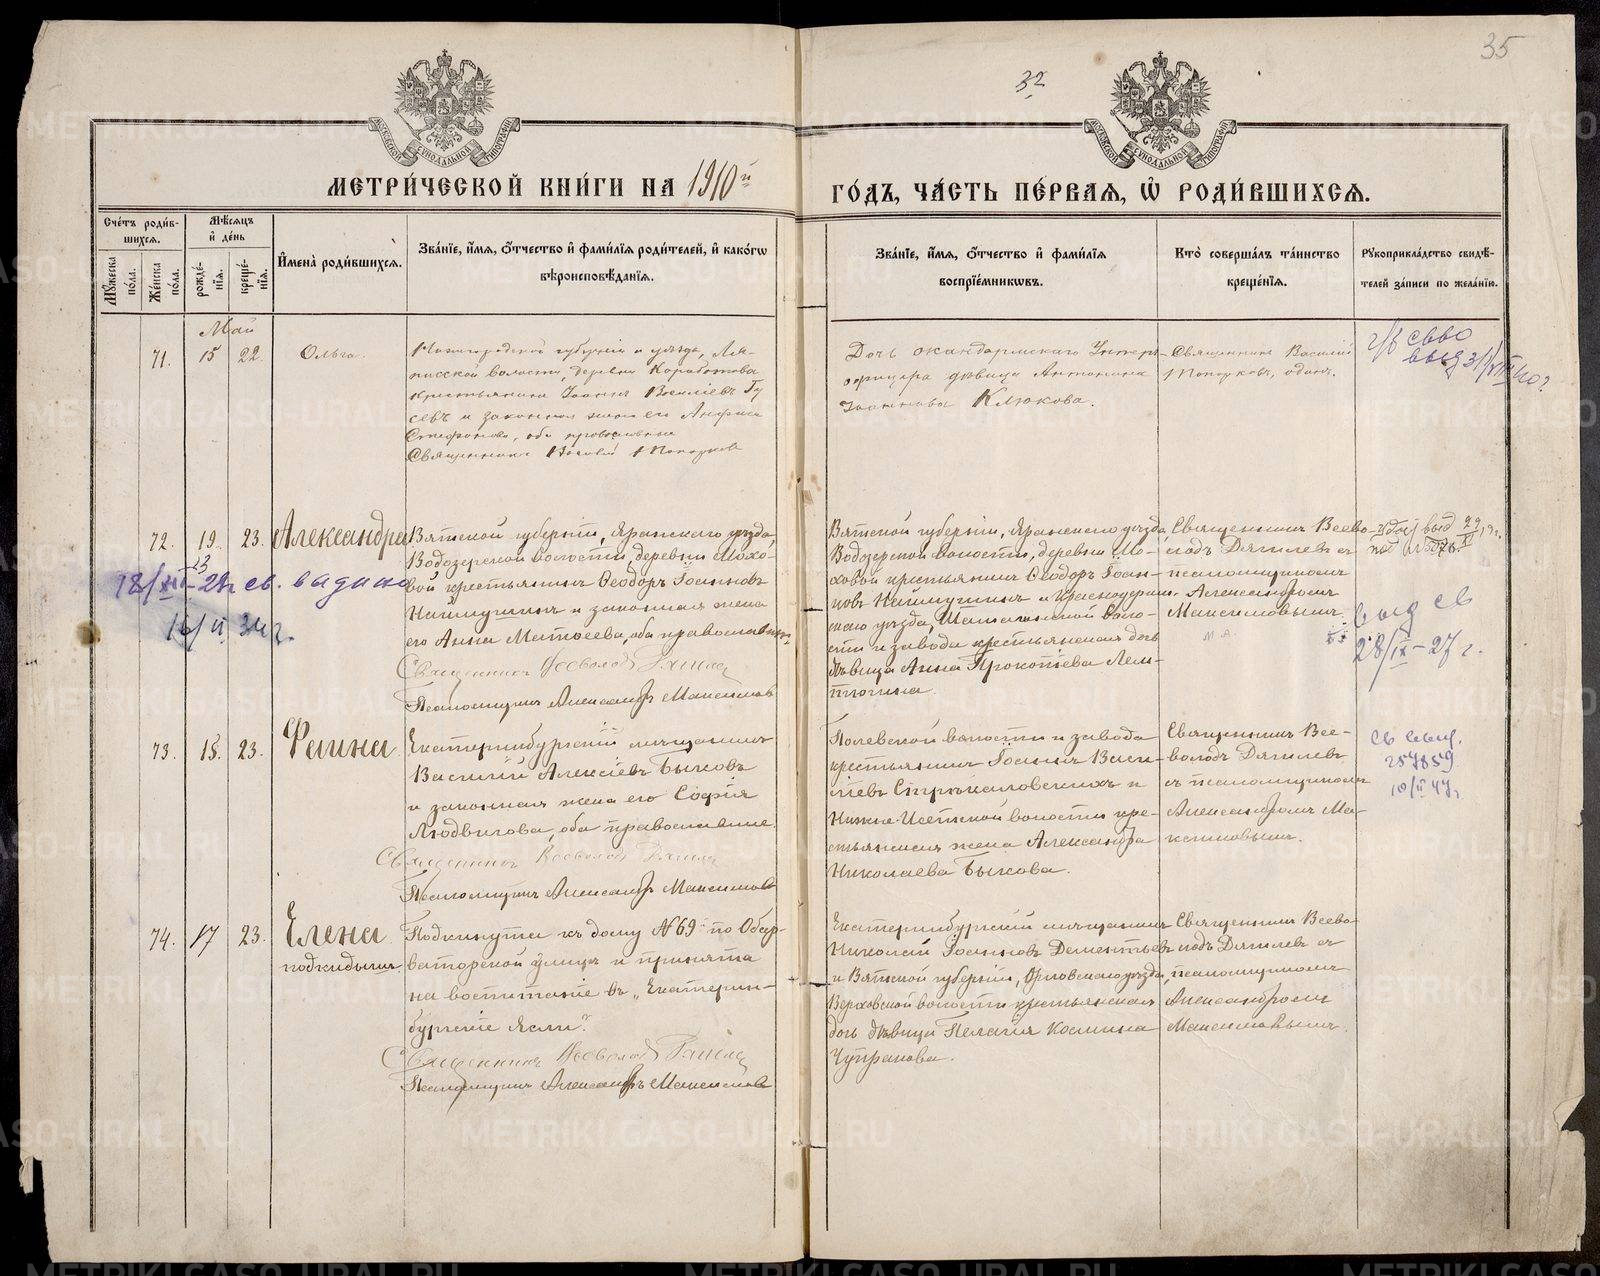 35
32
МОСКОВСКОЙ СѴНОДАЛЬНОЙ ТИПОГРАФІИ
МОСКОВСКОЙ СѴНОДАЛЬНОЙ ТИПОГРАФІИ
МЕТРИ́ЧЕСКОЙ КНИ́ГИ НА 1910й
ГО́ДЪ, ЧА́СТЬ ПЕ́РВАЯ, Ѡ҆ РОДИ́ВШИХСЯ.
Сче́тъ роди́в-
шихся.
Мужеска по́ла.
Же́нска по́ла.
Мѣ́сяцъ и҆ де́нь
рожде́-
нїя.
креще́-
нїя.
И҆мена̀ роди́вшихся.
Зва́нїе, и҆́мя, о҆́тчество и҆ фами́лїя роди́телей, и҆ како́гѡ
вѣроисповѣ́данїя.
Зва́нїе, и҆́мя, о҆́тчество и҆ фами́лїя
воспрїе́мникѡвъ.
Кто̀ соверша́лъ та́инство
креще́нїя.
Рукоприкла́дство свидѣ́-
телей за́писи по жела́нїю.
Май
71. 15 22. Ольга.
Нижегородской губерніи и уезда, Ля-
писской волости, деревни Коробатова
крестьянинъ Іоаннъ Васильевъ Гу
севъ и законная жена его Анфиса
Стефанова, оба православные
Священникъ Василій Топорковъ
Дочь жандармскаго Унтер-
офицера дѣвица Антонина
Іоаннова Клюкова.
Священникъ Василій
Топорковъ, одинъ.
св-во
выд 31/VIII 40 г
72. 19. 23. Александра
Вятской губерніи, Яранскаго уѣзда,
Водозерской волости, деревни Мохо-
вой крестьянинъ Ѳеодоръ Іоанновъ
Наймушинъ и законная жена
его Анна Матѳеева, оба православные
Священникъ Всеволодъ Дягилевъ
Псаломщикъ Александръ Максимовъ
18/XII-28г св. выдано
16/VI 34 г.
Вятской губерніи, Яранскаго уѣзда,
Водозерской волости, деревни Мо-
ховой крестьянинъ Ѳеодоръ Іоан-
новъ Наймушинъ и Красноуфим-
скаго уѣзда, воло-
сти и завода крестьянская дочь
дѣвица Анна Прокопіева Лем-
тюгина.
Священникъ Всево-
лодъ Дягилевъ съ
псаломщикомъ
Александромъ
Максимовымъ
выд св
28/IX-27 г.
73. 18. 23. Фаина
Екатеринбургскій мѣщанинъ
Василій Алексіевъ Быковъ
и законная жена его Софія
Людвигова, оба православные.
Священникъ Всеволодъ Дягилевъ
Псаломщикъ Александръ Максимовъ
Полевской волости и завода
крестьянинъ Іоаннъ Васи-
ліевъ и
Нижне-Исетской волости кре-
стьянская жена Александра
Николаева Быкова.
Священникъ Все-
володъ Дягилевъ
съ псаломщикомъ
Александромъ Ма-
ксимовымъ.
св выд.
257859
10/II 47г
74. 17 23. Елена
подкидышъ.
Подкинута къ дому №69й по Обсер-
ваторской улицѣ и принята
на воспитаніе въ „Екатерин-
бургскіе Ясли".
Священникъ Всеволодъ Дягилевъ
Псаломщикъ Александръ Максимовъ
Екатеринбургскій мѣщанинъ
Николай Іоанновъ Дементьевъ
и Вятской губерніи, Орловскаго уѣзда,
Верховской волости крестьянская
дочь дѣвица Пелагія Космина
Чупракова.
Священникъ Всево-
лодъ Дягилевъ съ
псаломщикомъ
Александромъ
Максимовымъ.
METRIKI.GASO-URAL.RU